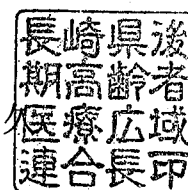 長崎県後
期高齢者
医療広域
連合長印